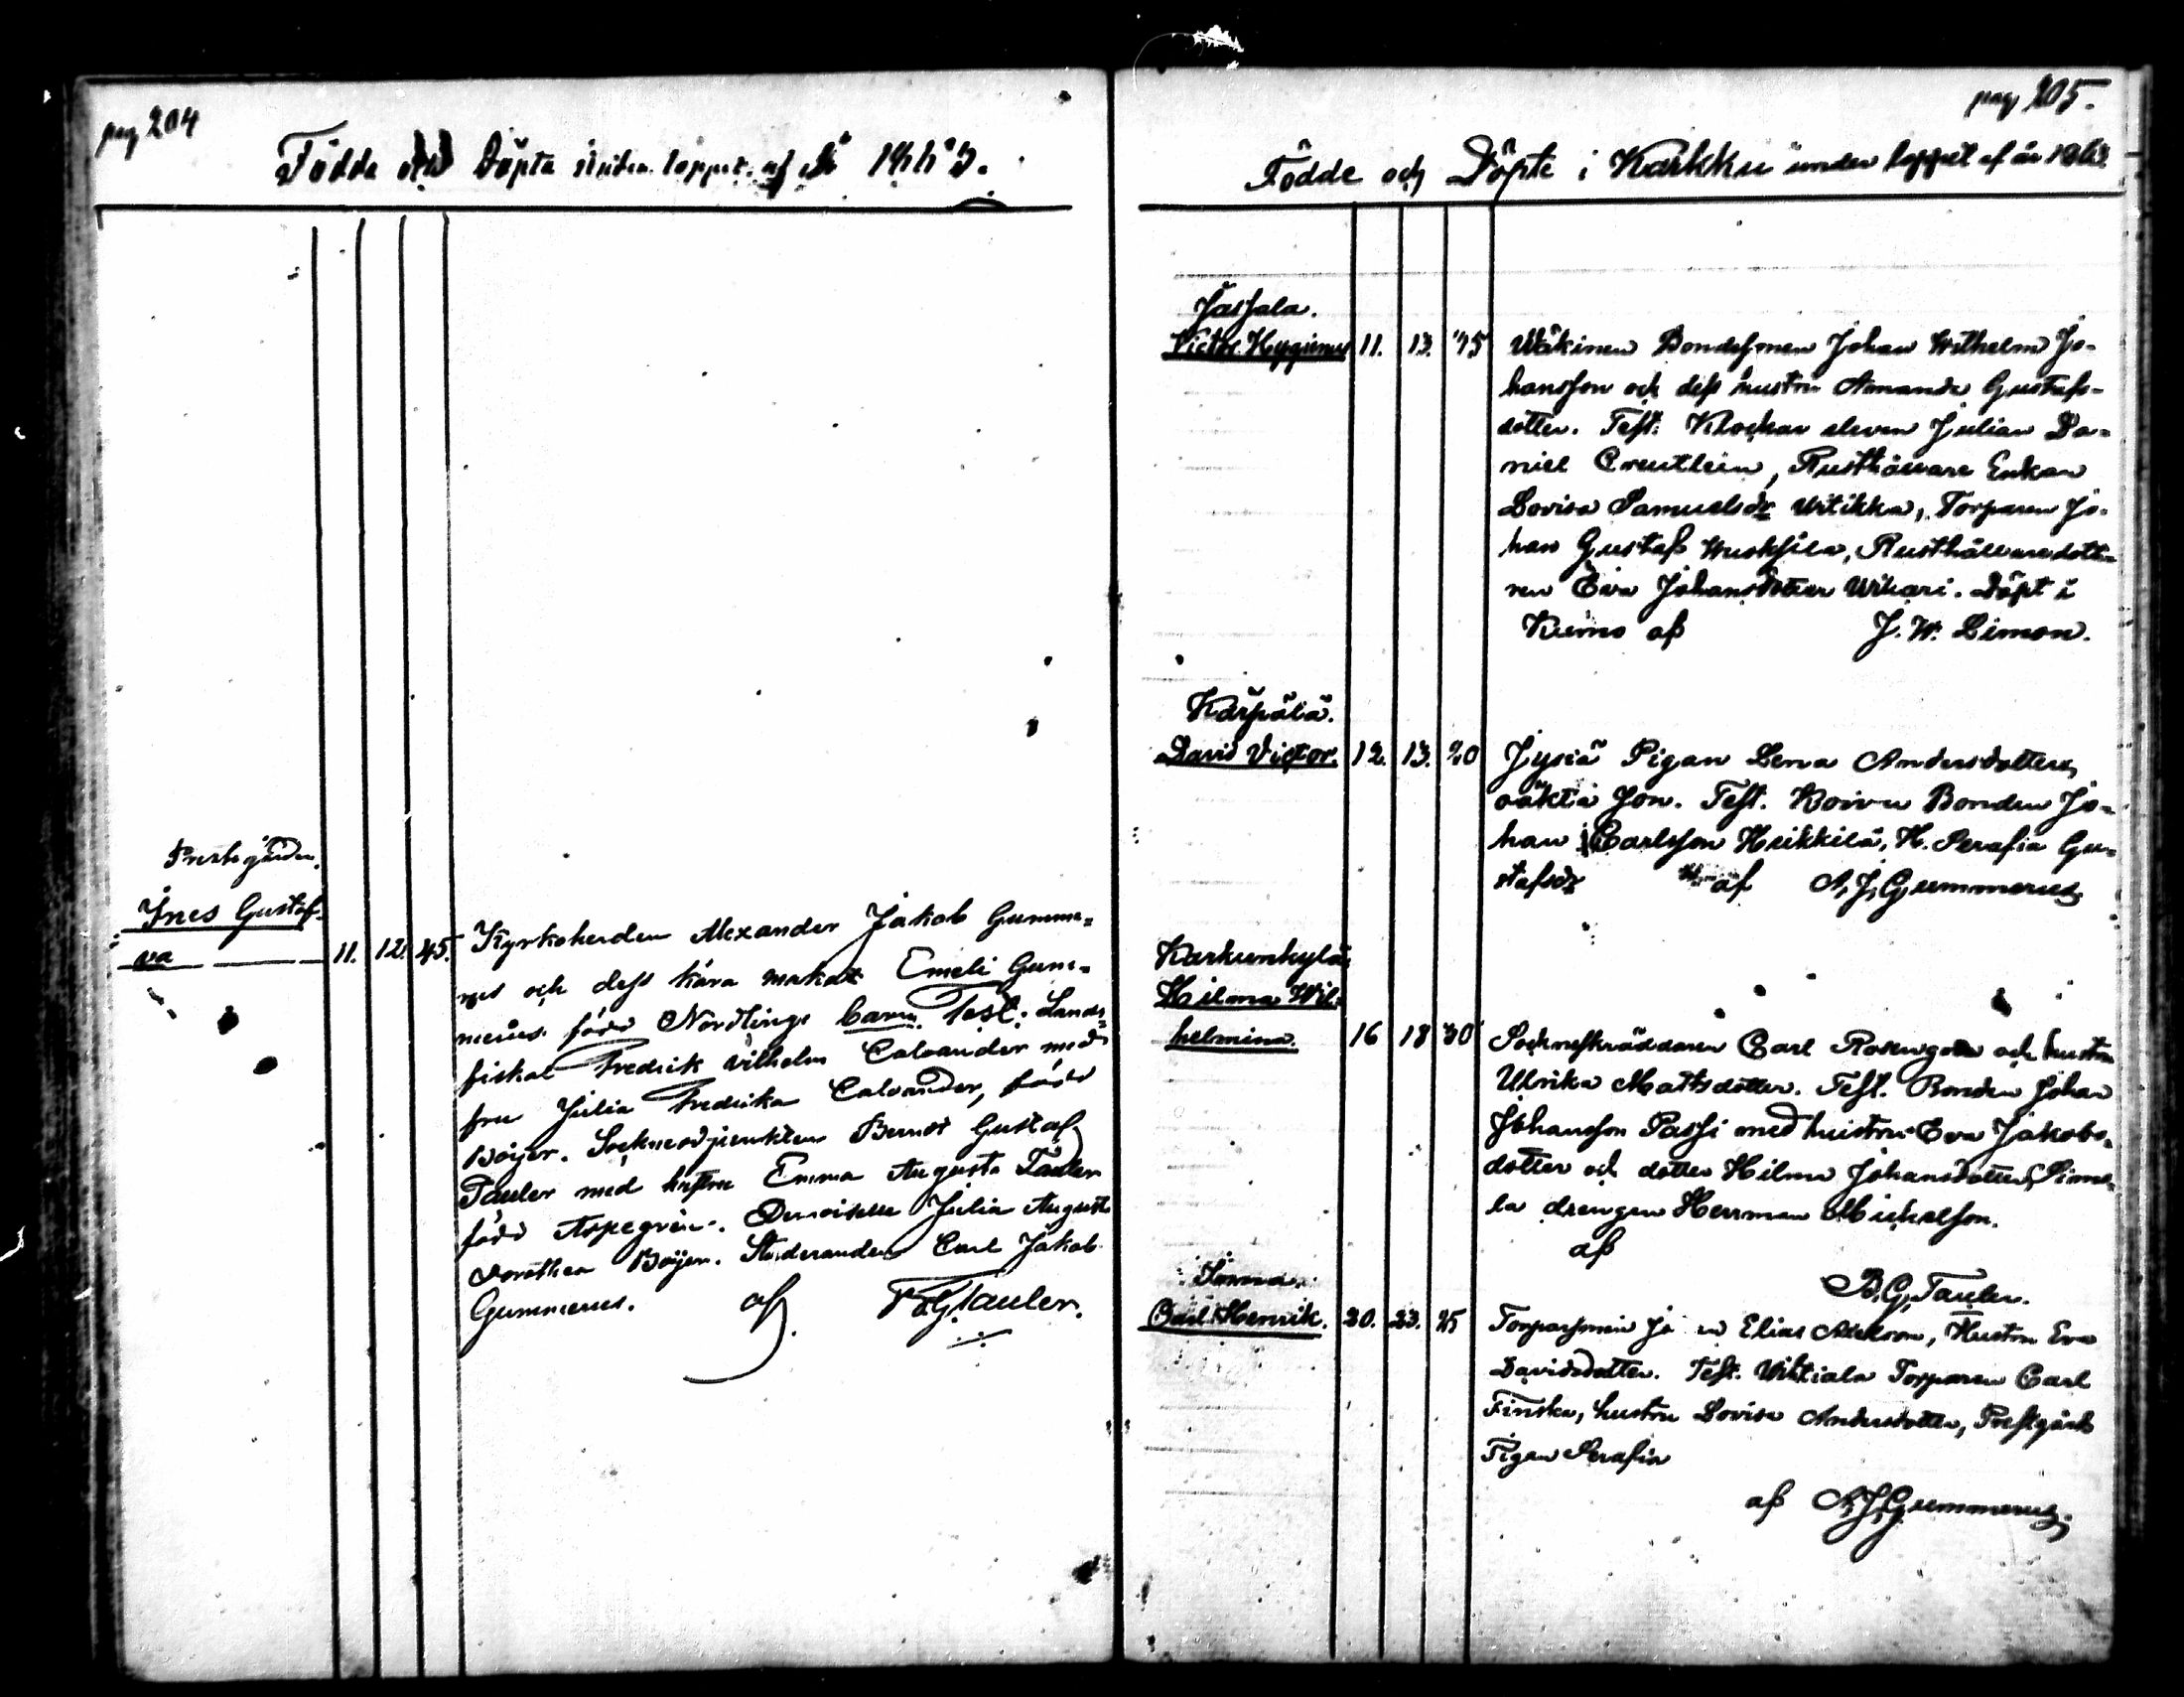 pag 204
Födda och Döpta under loppet af år
Prestgården.
Ines Gustaf-
va 11. 12. 45.
Kyrkoherden Alexander Jakob Gumme-
rus och dess kära maka Emeli Gum-
merus född Nordlings barn. Test: Lands-
fiskal Fredrik Vilhelm Calvander med
fru Julia Fredrika Calvander, född
Böijer. Sockneadjunkten Berndt Gustaf
Tauler med hustru Emma Augusta Tauler
född Aspegrén. Demoiselle Julia Augusta
Dorothea Böijer. Studeranden Carl Jakob
Gummerus. af B.G. Tauler.
pag 205.
Födde och Döpte i Karkku under loppet af år
Victor Hyginus 11. 13.
Bondesonen Johan Wilhelm Jo-
hansson och dess hustru Amanda Gustafs-
dotter. Test: Klockar eleven Julian Da-
niel Creutlein, Rusthållare Enkan
Lovisa Samuelsdr Uitikka, Torparen Jo-
han Gustaf, Rusthållaredott-
ren Eva Johansdotter. Döpt i
Kumo af J. W. Limon.
Kärpälä.
David Victor. 12. 13.
Pigan Lena Andersdotters
oäkta son. Test. Koivu Bonden Jo-
han Carlsson Heikkilä, H. Serafia Gu-
stafsdr af A.J. Gummerus
Karkunkylä
Hilma Wil-
helmina. 16 18 30
Socknskräddaren Carl Rosengren och hustru
Ulrika Mattsdotter. Test. Bonden Johan
Johansson Passi med hustru Eva Jakobs-
dotter och dotter Hilma Johansdotter, Sime-
la drengen Herrman Michelson.
af
B.G. Tauler.
Carl Henrik. 20. 23. 25
Torparsonen Elias, Hustru Eva
Davidsdotter. Test. Torparen Carl
Finska, hustru Lovisa Andersdotter, Prestgårds
Pigan Serafia
af A.J. Gummerus.